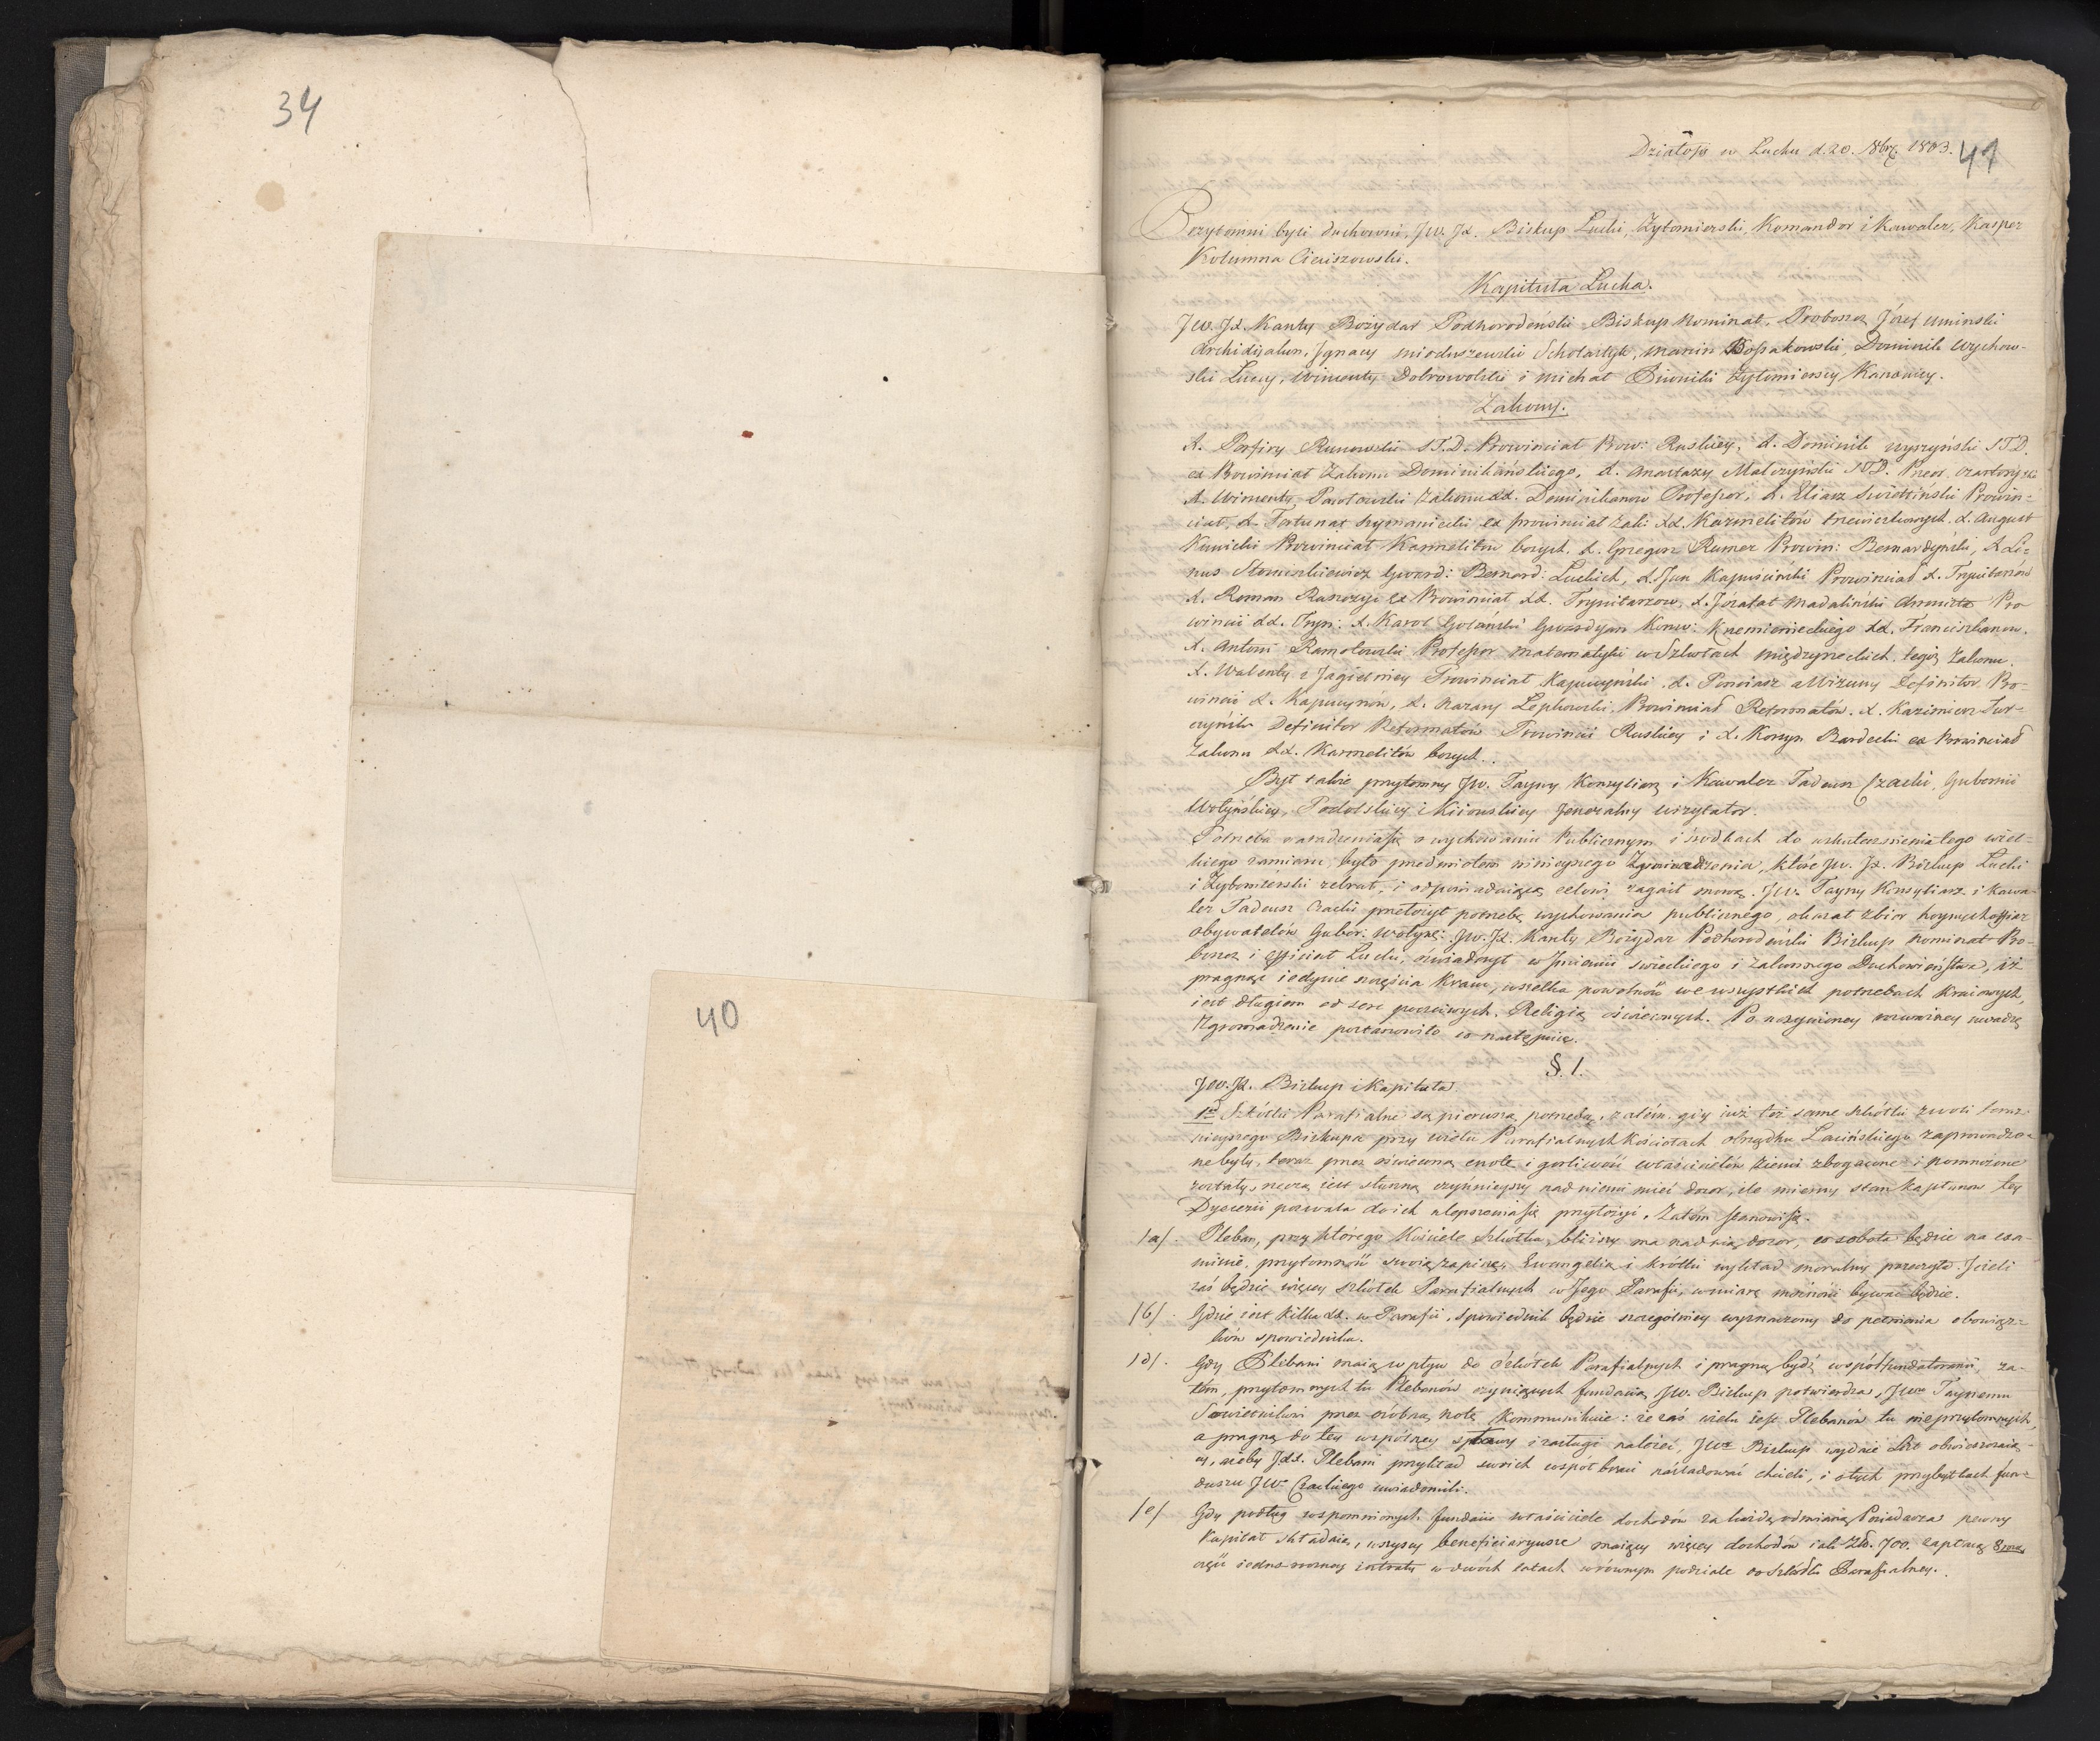 34
40
41
Działo się w Łucku d. 20. 8bra 1803.
Przytomni byli duchowni, JW. JX. Biskup Łucki, Żytomierski, Komandor i Kawaler, Kasper
Kolumna Cieciszowski.
Kapituła Łucka.
JW. JX. Kanty Bożydar Podhorodeński Biskup Nominat, Proboszcz, Józef Umiński
Archidyakon, Ignacy Mioduszewski Scholastyk, Marcin Bossakowski, Dominik Wychow-
ski Łuccy, Wincenty Dobrowolski i Michał Piwnicki Żytomierscy Kanonicy.
Zakony.
X. Porfiry S.T.D. Prowinciał Prow: Ruskiey, X. Dominik Wyszyński S.T.D.
ex Prowinciał Zakonu Dominikańskiego, X. Anastazy Malczyński S.T.D. Przeor
X. Wincenty Pawłowski Zakonu XX. Dominikanow Professor, X. Eliasz Prowin-
ciał, X. Fortunat Szymaniecki ex prowinciał Zak: XX. Karmelitów trzewiczkowych, X. August
Prowinciał Karmelitow bosych, X. Grzegorz Rumer Prowin: Bernardyński, X. Li-
nus Gward: Bernard: Łuckich, X. Jan Kapuściński Prowinciał X. Trynitarzów
X. Roman ex Prowinciał XX. Trynitarzow, X. Józafat Madaliński Pro
wincii XX. Tryn: X. Karol Golański Gwardyan Konw: Krzemienieckiego XX. Franciszkanow.
X. Antoni Ramołowski Professor Matematyki w Szkołach Międzyrzeckich, tegoż Zakonu.
X. Walenty z Jagielnicy Prowinciał Kapucyński, X. Definitor Pro-
wincii X. Kapucynów, X. Nazary Łepkowski, Prowinciał Reformatów. X. Kazimierz Tur-
czyński Definitor Reformatów Prowincii Ruskiey i X. Korsyn Bardecki ex Prowinciał
Zakonu XX. Karmelitów bosych.
Był także przytomny JW. Tayny Konsyliarz i Kawaler Tadeusz Czacki, Gubernii
Wołyńskiey, Podolskiey i Kiiowskiey Jeneralny wizytator.
Potrzeba naradzenia się o wychowaniu Publicznym i środkach do uskutecznienia tego wiel-
kiego zamiaru, było przedmiotem ninieyszego Zgromadzenia, które JW. JX. Biskup Łucki
i Żytomierski zebrał, i odpowiadaiącą celowi zagaił mową. JW. Tayny Konsyliarz i Kawa-
ler Tadeusz Czacki przełożył potrzebę wychowania publicznego, okazał zbior hoynych ofiar
obywatelow Guber: Wołyns: JW. JX. Kanty Bożydar Podhorodeński Biskup Nominat Pro-
boszcz i officiał Łucki, oświadczył w Jmieniu swieckiego i zakonnego Duchowieństwa, iż
pragnąc iedynie szczęścia Kraiu, wszelka powolność we wszystkich potrzebach Kraiowych,
iest długiem od serc poczciwych, Religią oświeconych. Po uczynioney uwadze
Zgromadzenie postanowiło co następuie.
§. 1.
JW. JX. Biskup i Kapituła.
1od Szkółki Parafialne są pierwszą potrzebą, zatém gdy iuż też same szkółki z woli teraz-
nieyszego Biskupa przy wielu Parafialnych Kościołach obrządku Łacińskiego zaprowadzo-
ne były, teraz przez oświeconą cnotę i gorliwość właścicielów ziemi zbogacone i pomnożone
zostały, rzeczą iest słuszną czynnieyszy nad niemi mieć dozor, ile mierny stan kapłanow tey
Dyecezii pozwala do ich ulepszenia się przyłożyć. Zatém stanowi się.
/a/. Pleban, przy którego Kościele Szkółka, bliższy ma nad nią dozor, co sobota będzie na exa-
minie, przytomność swoią zapisze, Ewangelią i krótki wykład moralny przeczyta. Jeżeli
zaś będzie więcey szkółek Parafialnych w Jego Parafii, w miarę możności bywać będzie.
/b/. Gdzie iest kilku XX. w Parafii, Spowiednik będzie szczególniey wyznaczony do pełnienia obowiąz-
ków spowiednika.
/d/. Gdy Plebani maią wpływ do Szkółek Parafialnych i pragną bydź współfundatorami, za-
tém, przytomnych tu Plebanów czyniących fundacią, JW. Biskup potwierdza, JWu Taynemu
Sowietnikowi przez osóbną notę Kommunikuie: że zaś wielu iest Plebanów tu nieprzytomnych,
a pragną do tey wspólney sprawy i zasługi należeć, JWX Biskup wydaie List obwieszczaią-
cy, żeby JXX. Plebani przykład swoich współbraci naśladować chcieli, i o tych przybytkach fun-
duszu JW. Czackiego uwiadomili.
/e/ Gdy podług wspomnionych fundacii właściciele dochodów za każdą odmianą Posiadacza pewny
Kapitał składaią, wszyscy beneficiaryusze maiący więcey dochodów iak Zł. 700. zapłacą 8mą
część iedno roczney intraty w dwóch latach w równym podziale do Szkółki Parafialney.